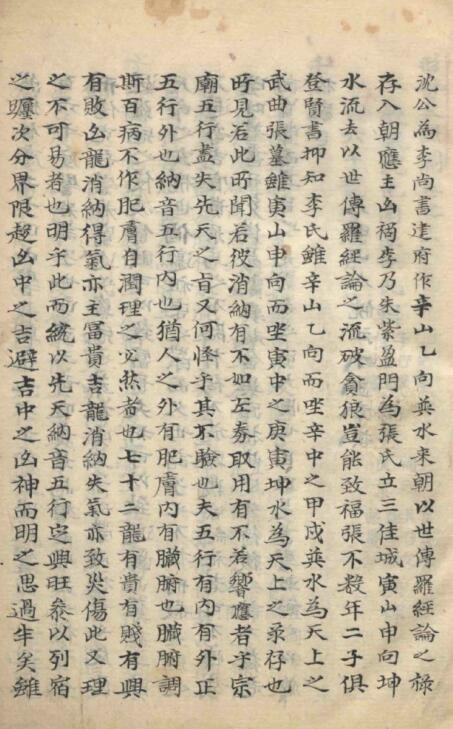 沈公為李尚書建府作辛山乙向巽水来朝以世傳羅經論之祿
存入朝應主凶禍李乃朱紫盈門為張氏立三佳城寅山申向坤
水流去以世傳羅經論之流破貪狼豈能致福張不數年二子俱
登賢書抑知李氏雖辛山乙向而坐辛中之甲戌巽水為天上之
武曲張墓雖寅山申向而坐寅中之庚寅坤水為天上之祿存也
所見若此所聞若彼消納有不如左券取用有不若響應者乎宗
廟五行盡失先天之旨又何怪乎其不驗也夫五行有内有外正
五行外也納音五行内也猶人之外有肥膚内有臟腑也臟腑調
斯百病不作肥膚自潤理之必然者也七十二龍有貴有賤有興
有敗凶龍消納得氣亦主冨貴吉龍消納失氣亦致災傷此又理
之不可易者也明乎此而統以先天納音五行定興旺叅以列宿
之躔次分界限趨凶中之吉避吉中之凶神而明之思過半矣雖